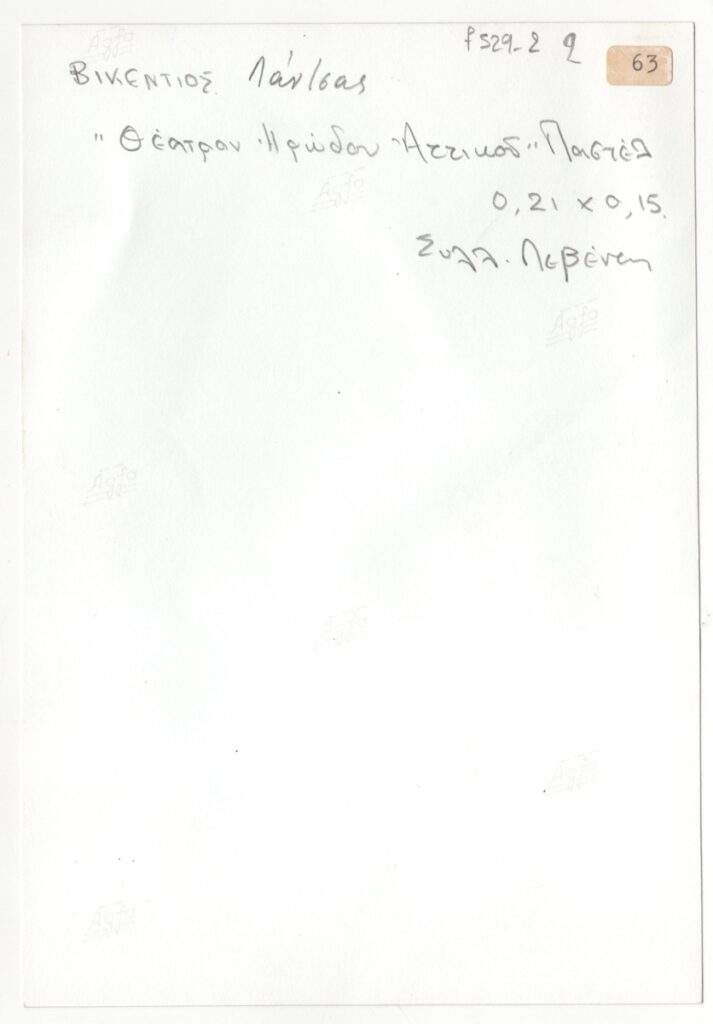 f529-2 9 63
ΒΙΚΕΝΤΙΟΣ Λάντσας
"Θέατρον Ἡρώδου Ἀττικοῦ" Παστέλ
0,21 x 0,15.
Συλλ. Λεβέντη
Agfa
Agfa
Agfa
Agfa
Agfa
Agfa
Agfa